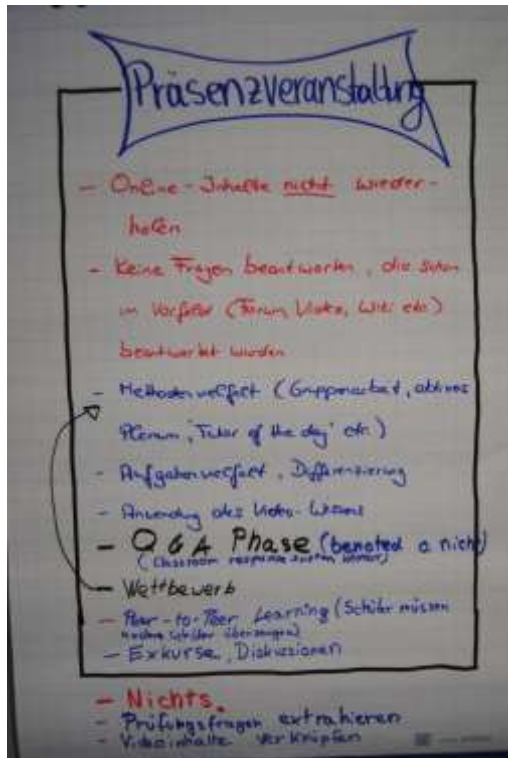 Präsenzveranstaltung
- Online-Inhalte nicht wieder-
holen
- Keine Fragen beantworten, die schon
im Vorfeld (Forum, Video, Wiki etc.)
beantwortet wurden
- Methodenvielfalt (Gruppenarbeit, aktives
Plenum, "Tutor of the day" etc.)
- Aufgabenvielfalt, Differenzierung
- Anwendung des Video-Wissens
- Q & A Phase (benoted o nicht)
(Classroom response system)
- Wettbewerb
- Peer-to-Peer Learning (Schüler müssen
Schüler überzeugen)
- Exkurse, Diskussionen
- Nichts.
- Prüfungsfragen extrahieren
- Videoinhalte verknüpfen